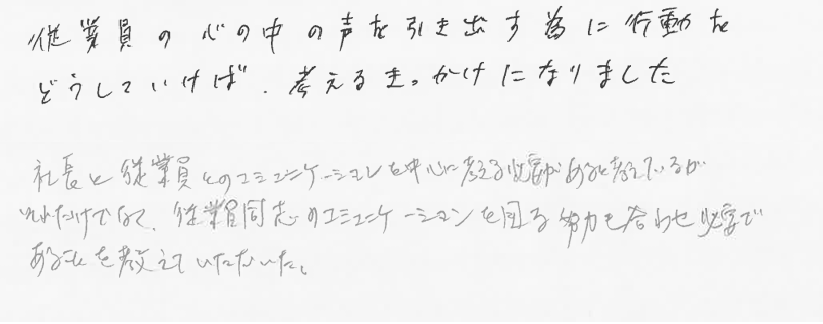 従業員の心の中の声を引き出す為に行動を
どうしていけば、考えるきっかけになりました
社長と従業員とのコミュニケーションを中心に考える必要があると考えているが
それだけでなく、従業員同志のコミュニケーションを図る努力も合わせ必要で
あることを教えていただいた。